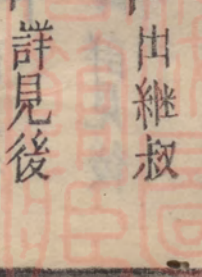 出継叔
詳見後